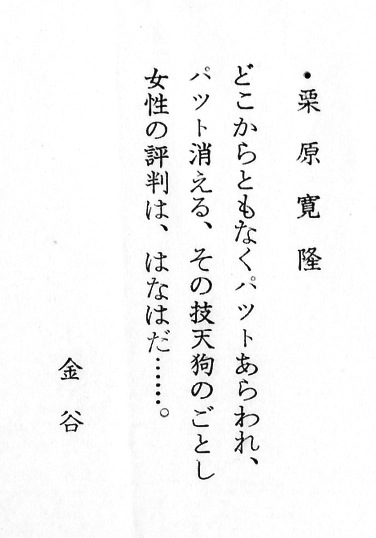 ・栗原寛隆
どこからともなくパツトあらわれ、
パツト消える、その技天狗のごとし
女性の評判は、はなはだ……。
金谷